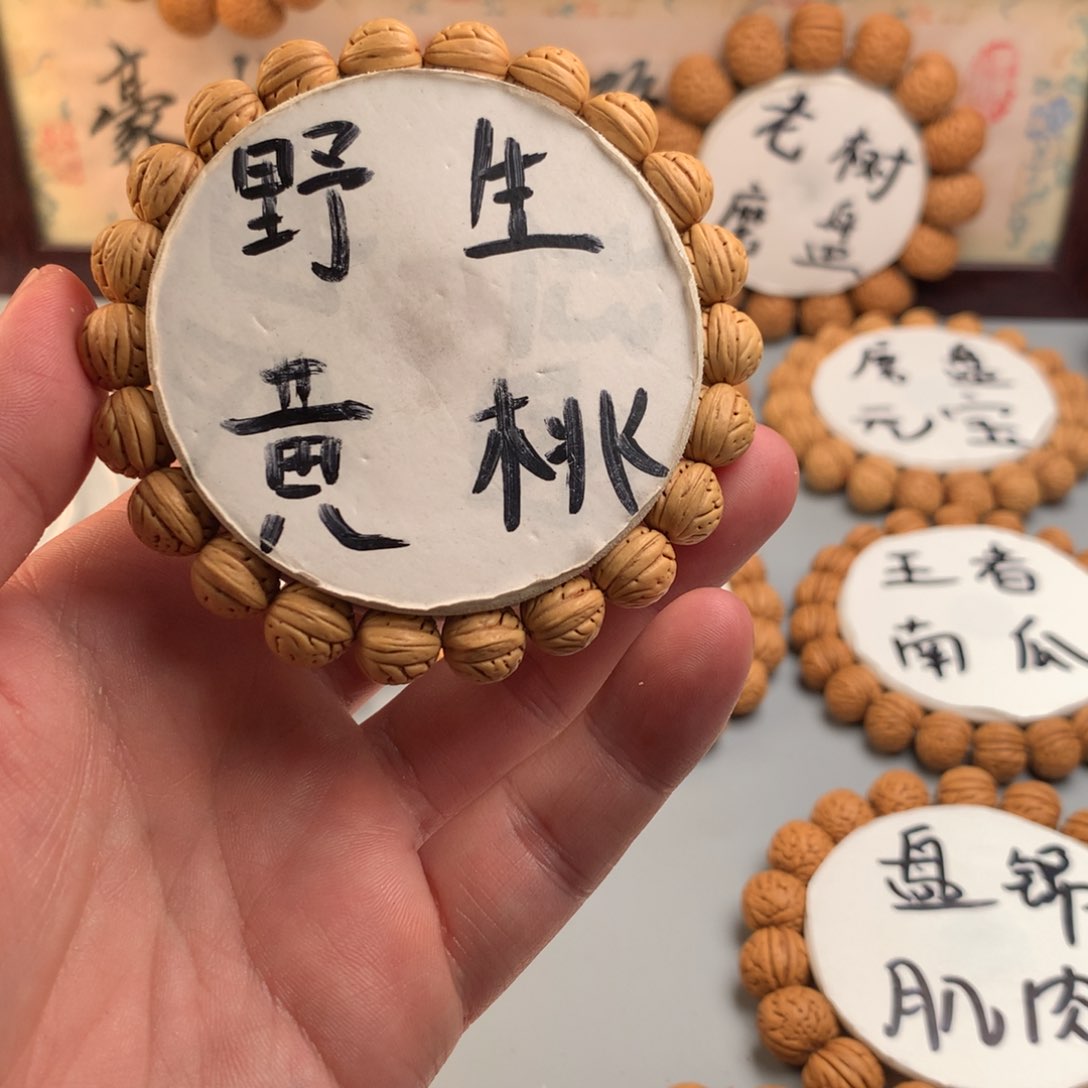 野生
黄桃
豪
老树
磨盘
度盘
元宝
王者
南瓜
盘锦
肌肉